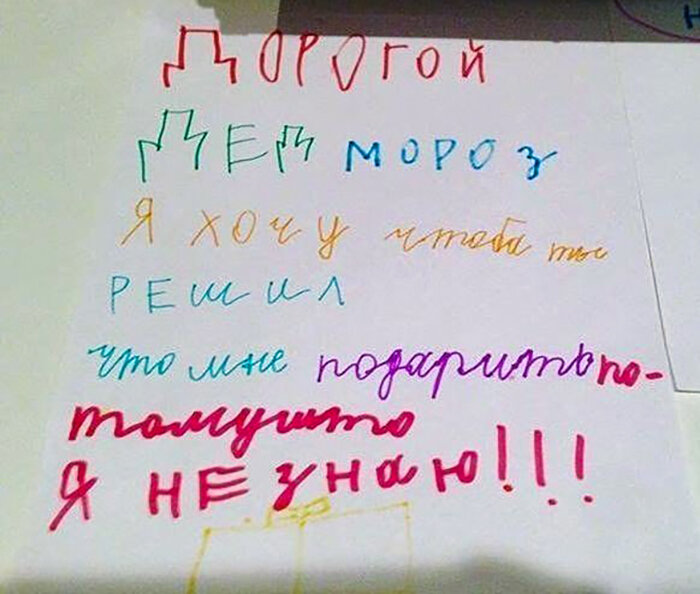 ДОРОГОЙ
ДЕД МОРОЗ
Я ХОЧУ чтоба ты
РЕШИЛ
что мне подарить по-
томушто
Я НЕ ЗНАЮ!!!